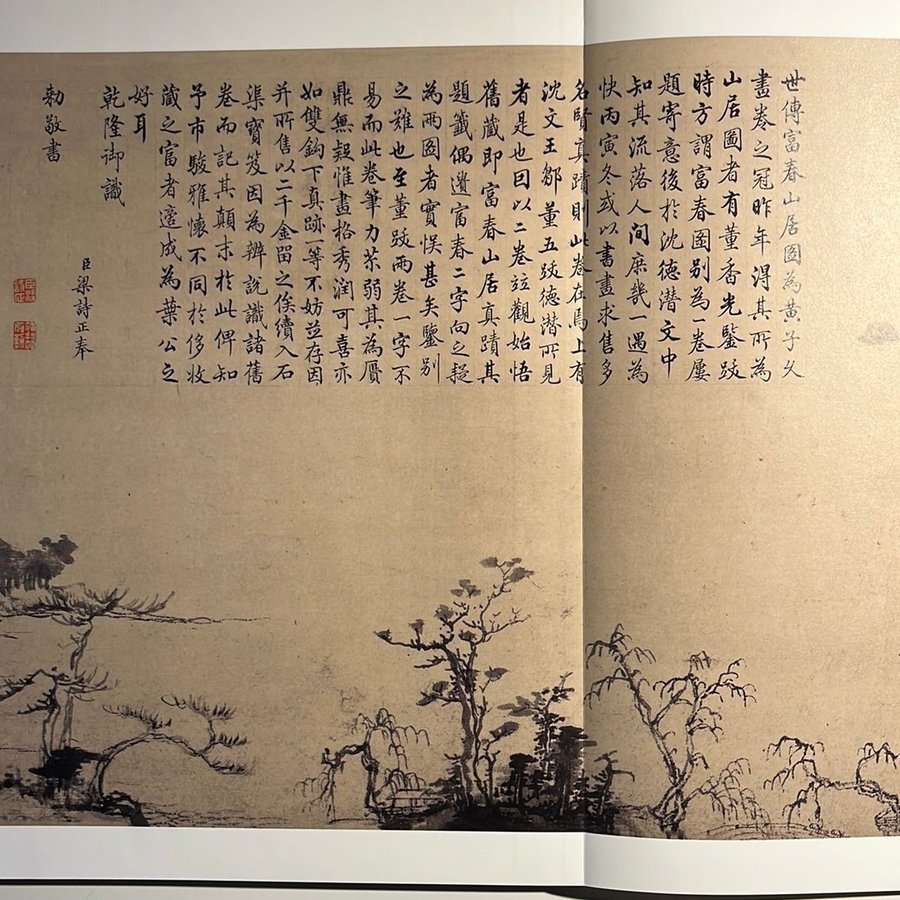 世傳富春山居圖為黃子久
畫卷之冠昨年得其所為
山居圖者有董香光鑒跋
時方謂富春圖别為一卷屢
題寄意後於沈德潛文中
知其流落人間庶幾一遇為
快丙寅冬或以書畫求售多
名賢真蹟則此卷在焉上有
沈文王鄒董五跋德潛所見
者是也因以二卷竝觀始悟
舊藏即富春山居真蹟其
題籖偶遺富春二字向之疑
為兩圖者實悮甚矣鑒别
之難也至董跋兩卷一字不
易而此卷筆力苶弱其為贋
鼎無疑惟畫格秀潤可喜亦
如雙鈎下真跡一等不妨竝存因
并所售以二千金留之俟續入石
渠寶笈因為辨說識諸舊
卷而記其顛末於此俾知
予市駿雅懷不同於侈收
藏之富者遽成為葉公之
好耳
乾隆御識
臣梁詩正奉
勅敬書